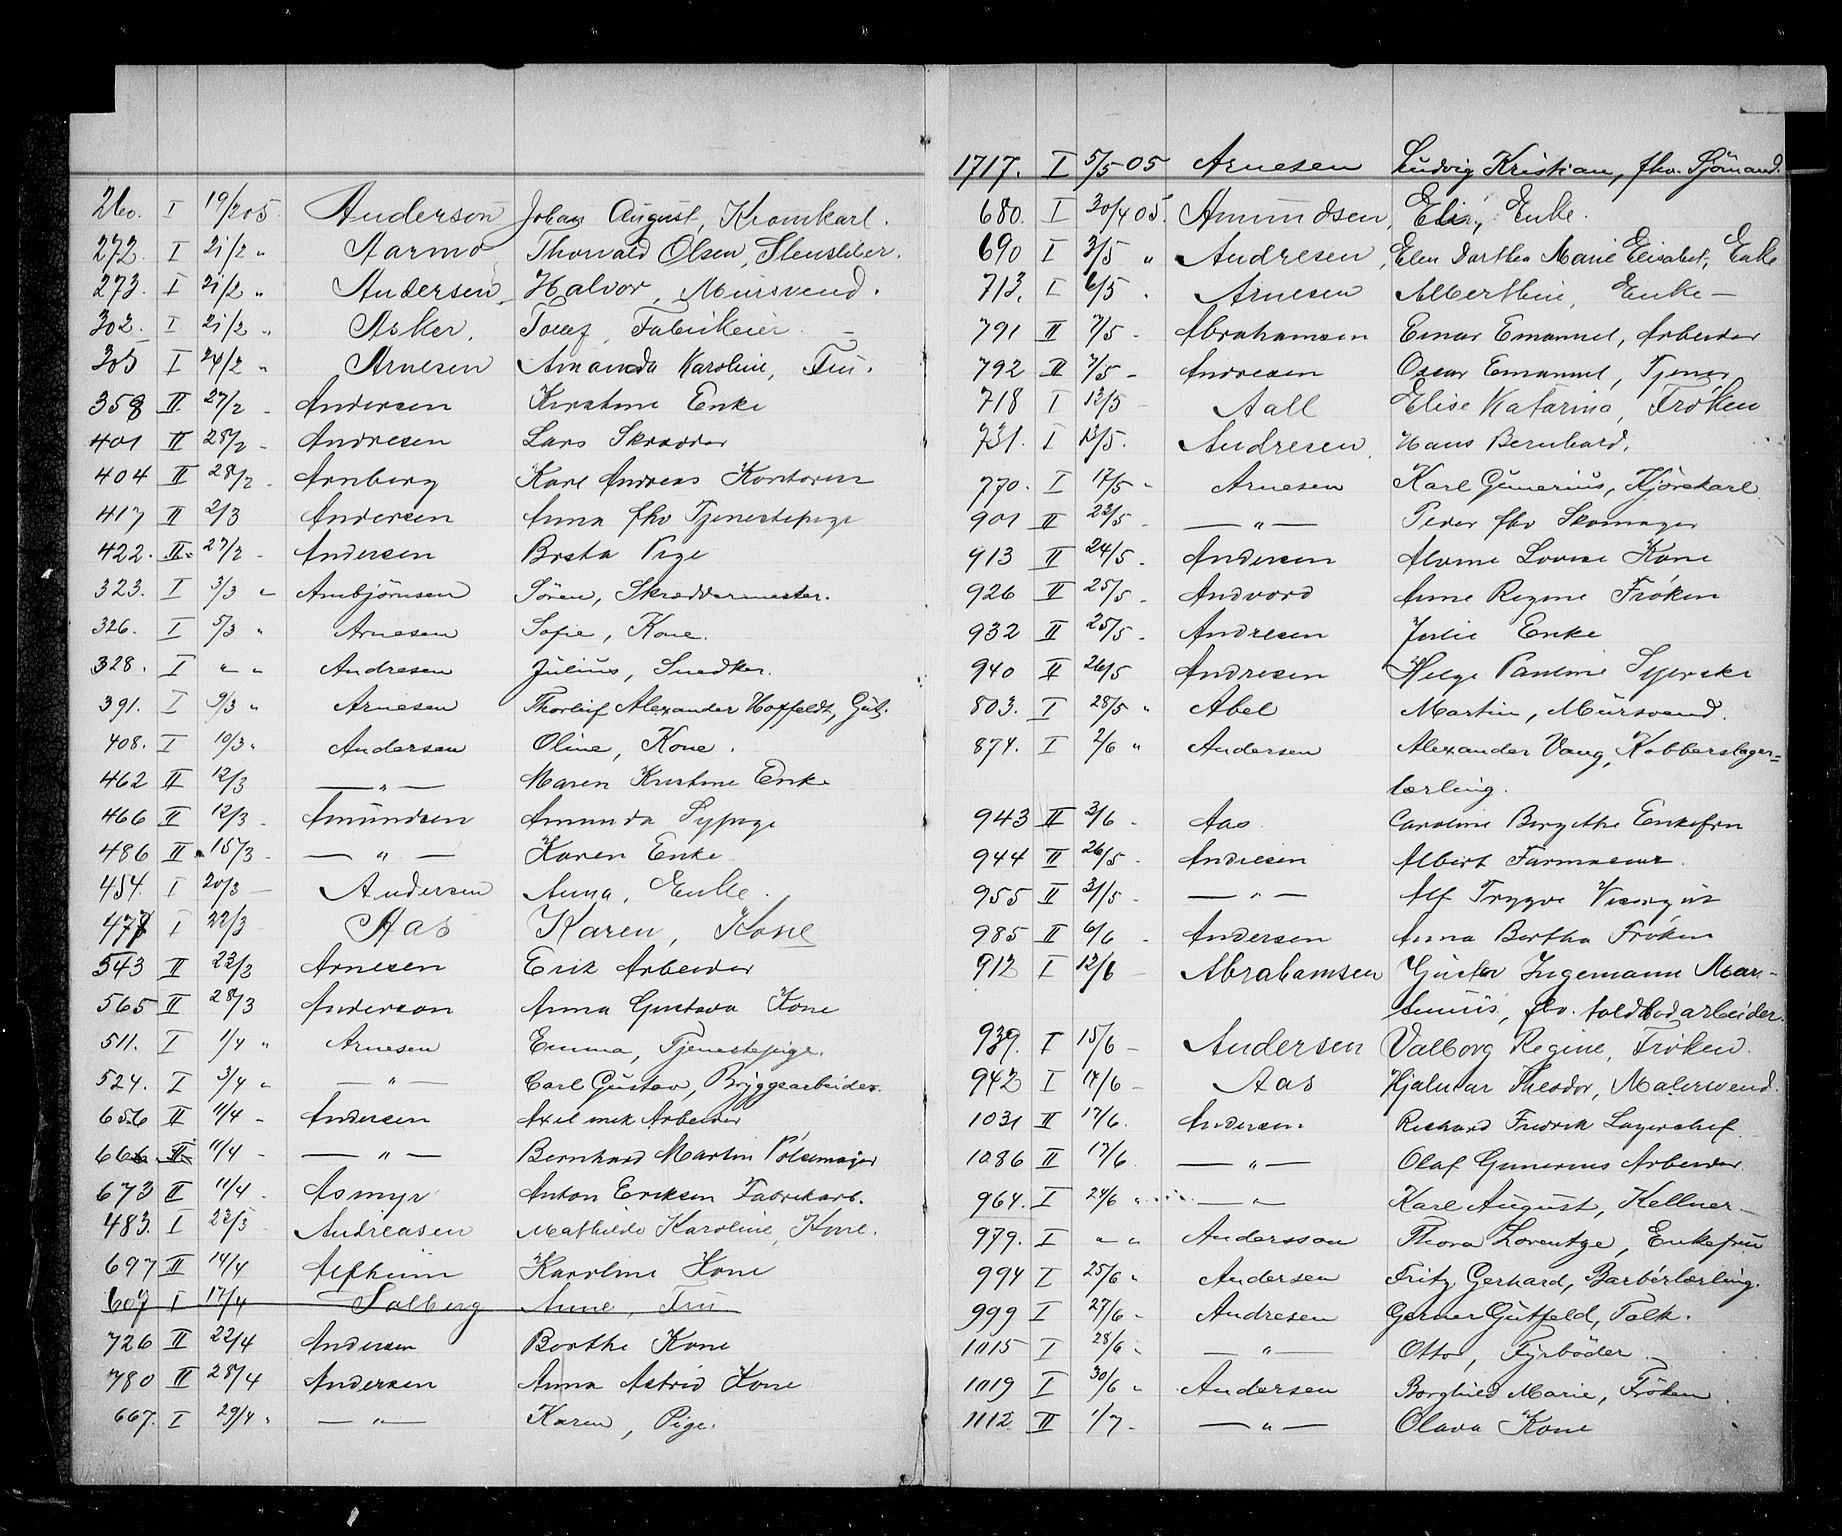 260. I 19/2 05 Anderson Johan August, Kramkarl.
272. I 21/2 „ Aarmo Thorvald Olsen, Stensliber.
273. I 21/2 „ Andersen, Halvor, Mursvend.
302. I 21/2 „ Asker, Fabrikeier.
305 I 24/2 „ Arnesen Amanda Karoline, Fru.
358 II 27/2 - Andersen Kirstine Enke
401 II 28/2 - Andresen Lars Skrædder
404 II 28/2 - Arnberg Karl Andreas Kontorm
417 II 2/3 Andersen Anna fhv Tjenestepige
422. II 27/2 - Andersen Berta Pige
323. I 3/3 „ Arnbjørnsen Sören, Skræddermester.
326. I 5/3 „ Arnesen Sofie, Kone.
328. I „ „ Andresen Julius, Snedker.
391. I 9/3 „ Arnesen Thorleif Alexander Hoxfeldt, Gut.
408. I 10/3 „ Andersen Oline, Kone.
462 II 12/3 — „ — Maren Kristine Enke
466 II 12/3 - Amundsen Amunda Sypige
486 II 15/3 - — „ — Karen Enke
454. I 20/3 — Andersen Anna, Enke.
477 I 22/3 Aas Karen, Kone
543 II 23/3 Arnesen Erik Arbeider
565 II 28/3 Anderson Anna Gustava Kone
511. I 1/4 „ Arnesen Emma, Tjenestepige.
524. I 3/4 „ — „ — Carl Gustav, Bryggearbeider.
656 II 11/4 - Andersen Axel mek Arbeider
666 II 11/4 - — „ — Bernhard Martin Pölsemager
673 II 11/4 - Asmyr Anton Eriksen Fabrikarb.
483. I 22/3 Andreasen Mathilde Karoline, Kone.
697 II 14/4 Alfheim Karoline Kone
607 I 17/4 Solberg Anne, Fru
726 II 22/4 Andersen Borthe Kone
780 II 28/4 Andersen Anna Astrid Kone
667. I 29/4 „ — „ — Karen, Pige.
1717. I 5/5 05 Arnesen Ludvig Kristian, fhv. Sjömand.
680. I 30/4 05. Amundsen, Elise, Enke.
690 I 3/5 „ Andresen, Elen Dorthea Marie Elisabet, Enke
713. I 6/5 . Arnesen Alberthine, Enke —
791 II 7/5 - Abrahamsen Einar Emanuel, Arbeider
792 II 7/5 - Andresen Oscar Emanuel, Tjener
718 I 12/5 - Aall Elise Katarina, Frøken
731. I 13/5. Andresen, Hans Bernhard,
770. I 17/5 - Arnesen Karl Gunerius, Kjörekarl.
901 II 22/5 - — „ — Peder fhv Skomager
913 II 24/5 - Andersen Alvine Lovise Kone
926 II 25/5 - Andvord Anne Regine Frøken
932 II 25/5 - Andresen Julie Enke
940 II 26/5 Andresen Helga Pauline Syerske
803. I 28/5 „ Abel Martin, Mursvend.
874. I 2/6 „ Andersen Alexander Vang, Kobberslager=
lærling.
943 II 3/6 - Aas Caroline Birgithe Enkefru
944 II 26/5 - Andresen Albert Farmaceut.
955 II 31/5 - — „ — Alf Trygve
985 II 6/6 - Andersen Anna Bertha Frøken
912 I 12/6 - Abrahamsen Gustav Ingemann Mar-
tinius, fhv. toldbodarbeider.
939. I 15/6 - Andersen Valborg Regine, Frøken.
942 I 17/6 - Aas Hjalmar Theodor, Malersvend.
1031 II 17/6. Andersen Richard Fredrik Lagerchef
1086 II 17/6 — „ — Olaf Gunerius Arbeider.
964. I 24/6 „ — „ — Karl August, Kellner —
979. I „ „ Andersson Thora Lorentze, Enkefru
994 I 25/6 „ Andersen Fritz Gerhard, Barbérlærling.
999 I 27/6 - Andresen Gerner Gutfeld, Tolk.
1015 I 28/6 - — „ — Otto, Fyrböder —
1019 I 30/6 „ Andersen Borghild Marie, Frøken
1112 II 1/7 - — „ — Olava Kone